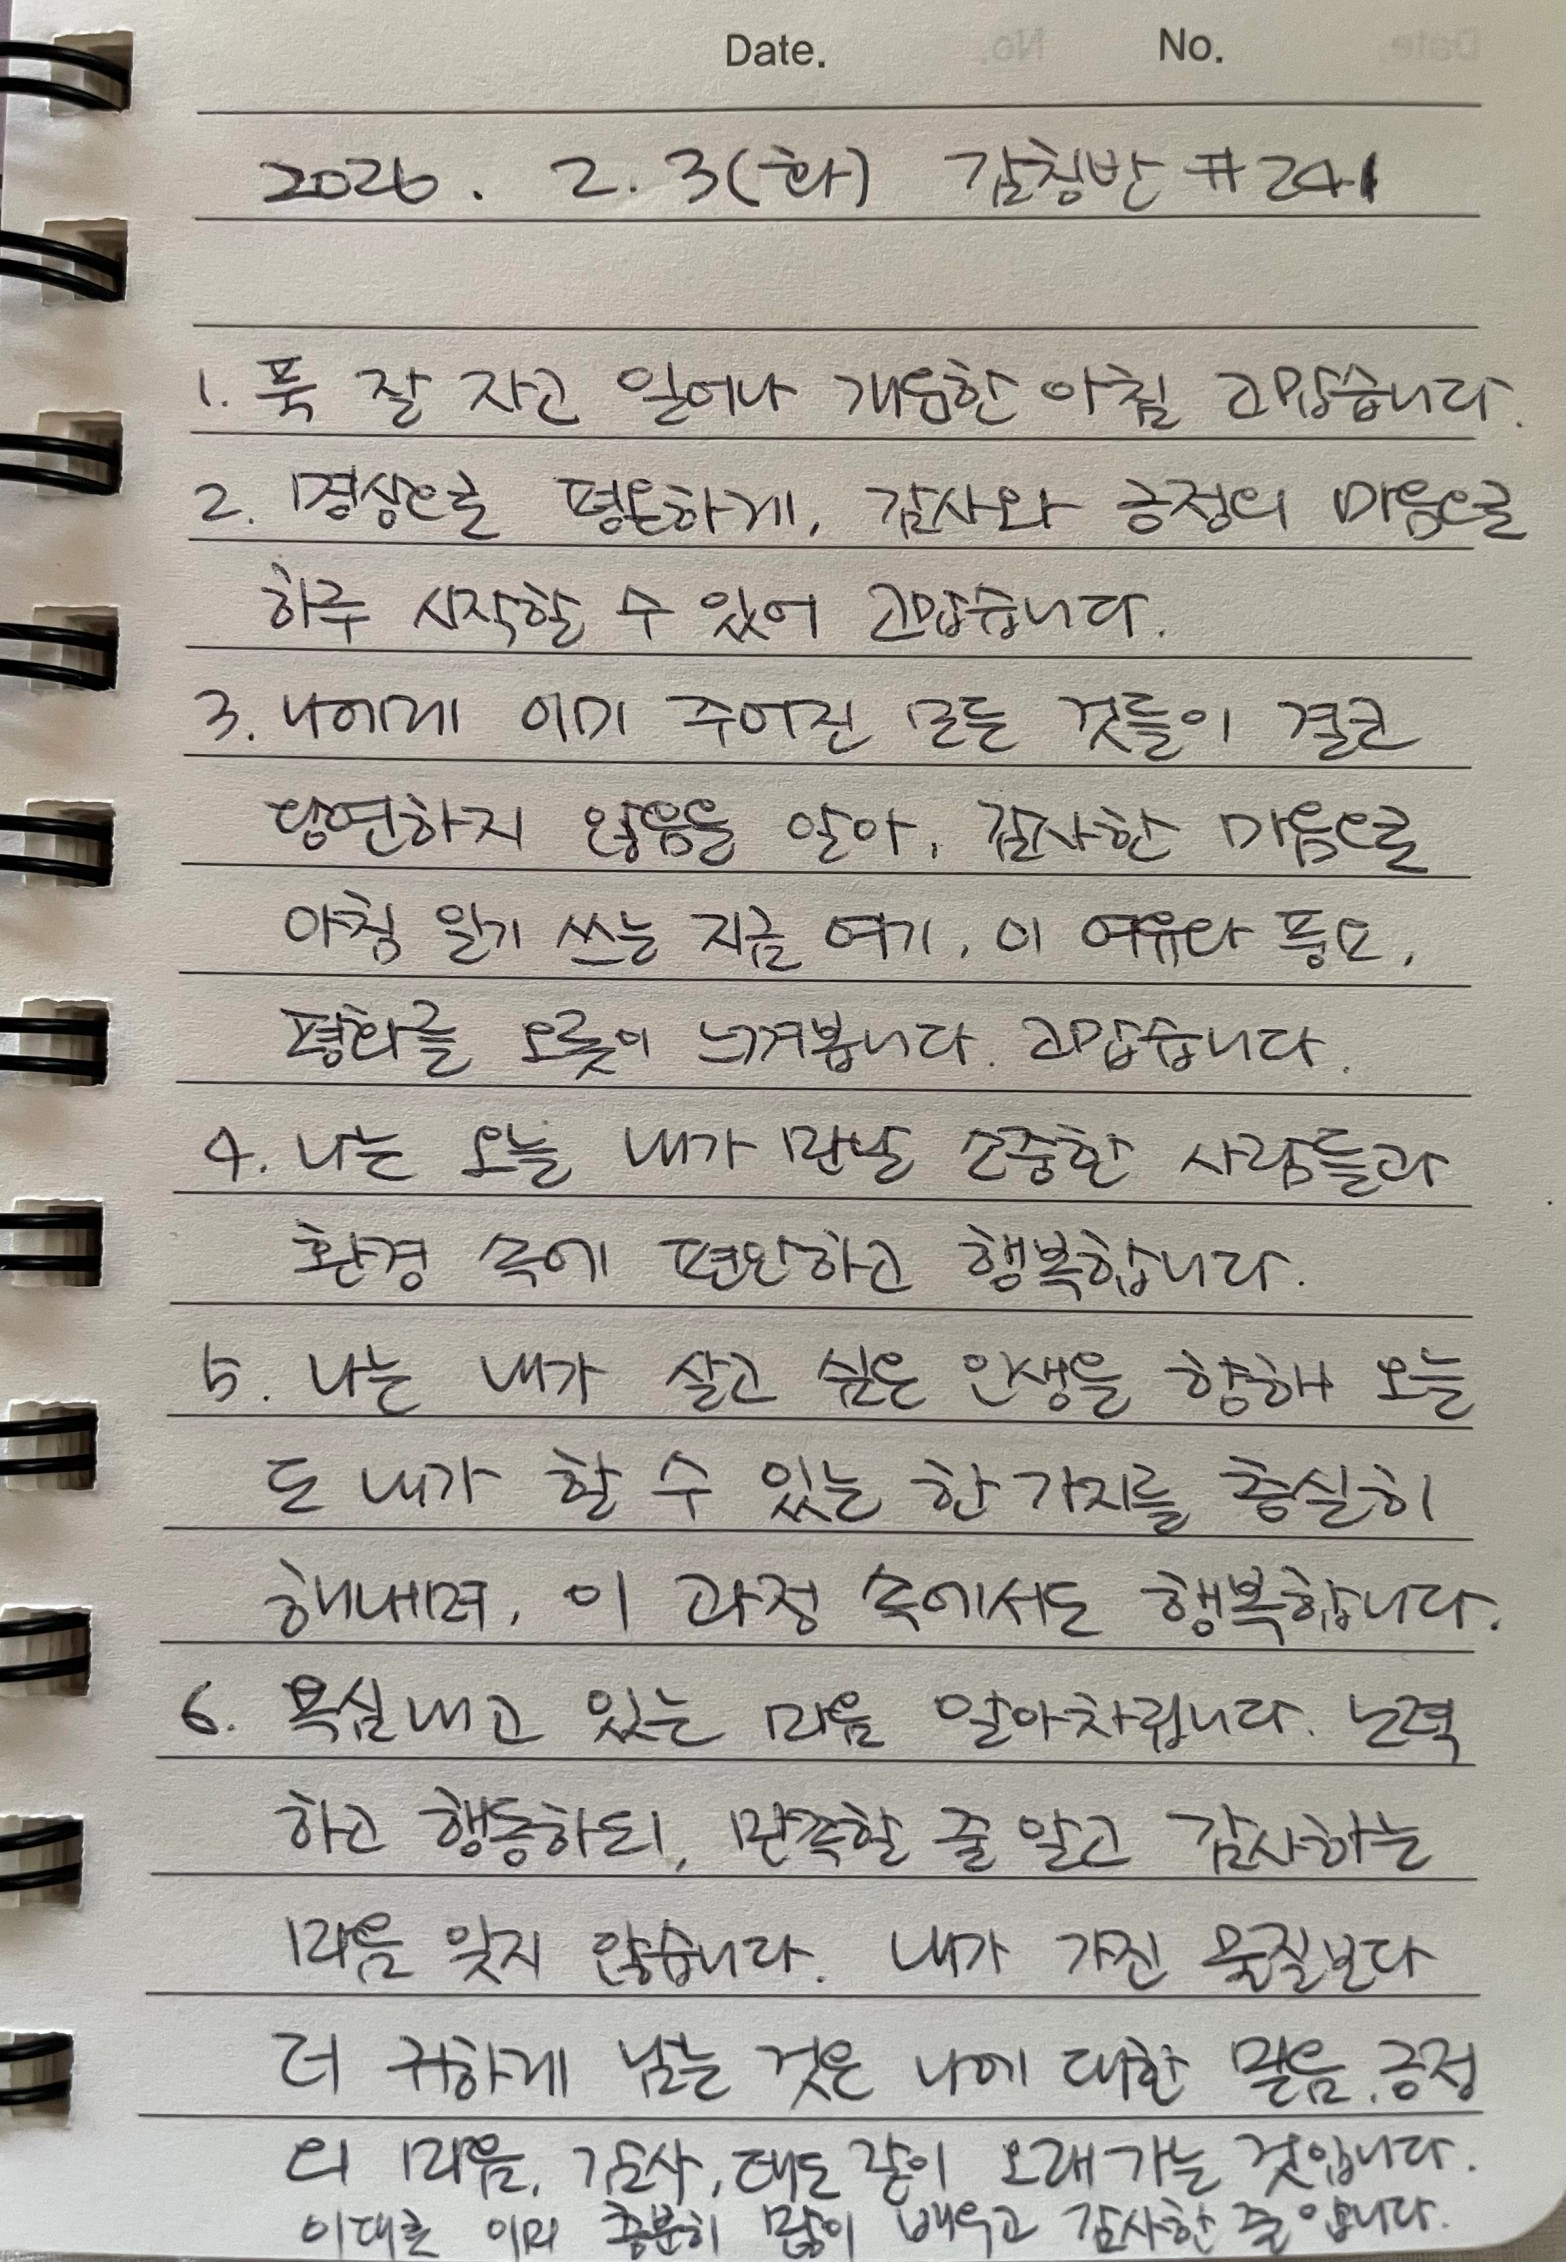 Date. No.
2026. 2. 3(화) 감칭반 #241
1. 푹 잘 자고 일어나 개운한 아침 고맙습니다.
2. 명상으로 평온하게, 감사와 긍정의 마음으로
하루 시작할 수 있어 고맙습니다.
3. 나에게 이미 주어진 모든 것들이 결코
당연하지 않음을 알아, 감사한 마음으로
아침 일기 쓰는 지금 여기, 이 여유와 풍요,
평화를 오롯이 느껴봅니다. 고맙습니다.
4. 나는 오늘 내가 만날 소중한 사람들과
환경 속에 편안하고 행복합니다.
5. 나는 내가 살고 싶은 인생을 향해 오늘
도 내가 할 수 있는 한 가지를 충실히
해내며, 이 과정 속에서도 행복합니다.
6. 욕심내고 있는 마음 알아차립니다. 노력
하고 행동하되, 만족할 줄 알고 감사하는
마음 잊지 않습니다. 내가 가진 물질보다
더 귀하게 남는 것은 나에 대한 믿음, 긍정
의 마음, 감사, 태도 같이 오래 가는 것입니다.
이대로 이미 충분히 많이 배우고 감사한 줄 압니다.